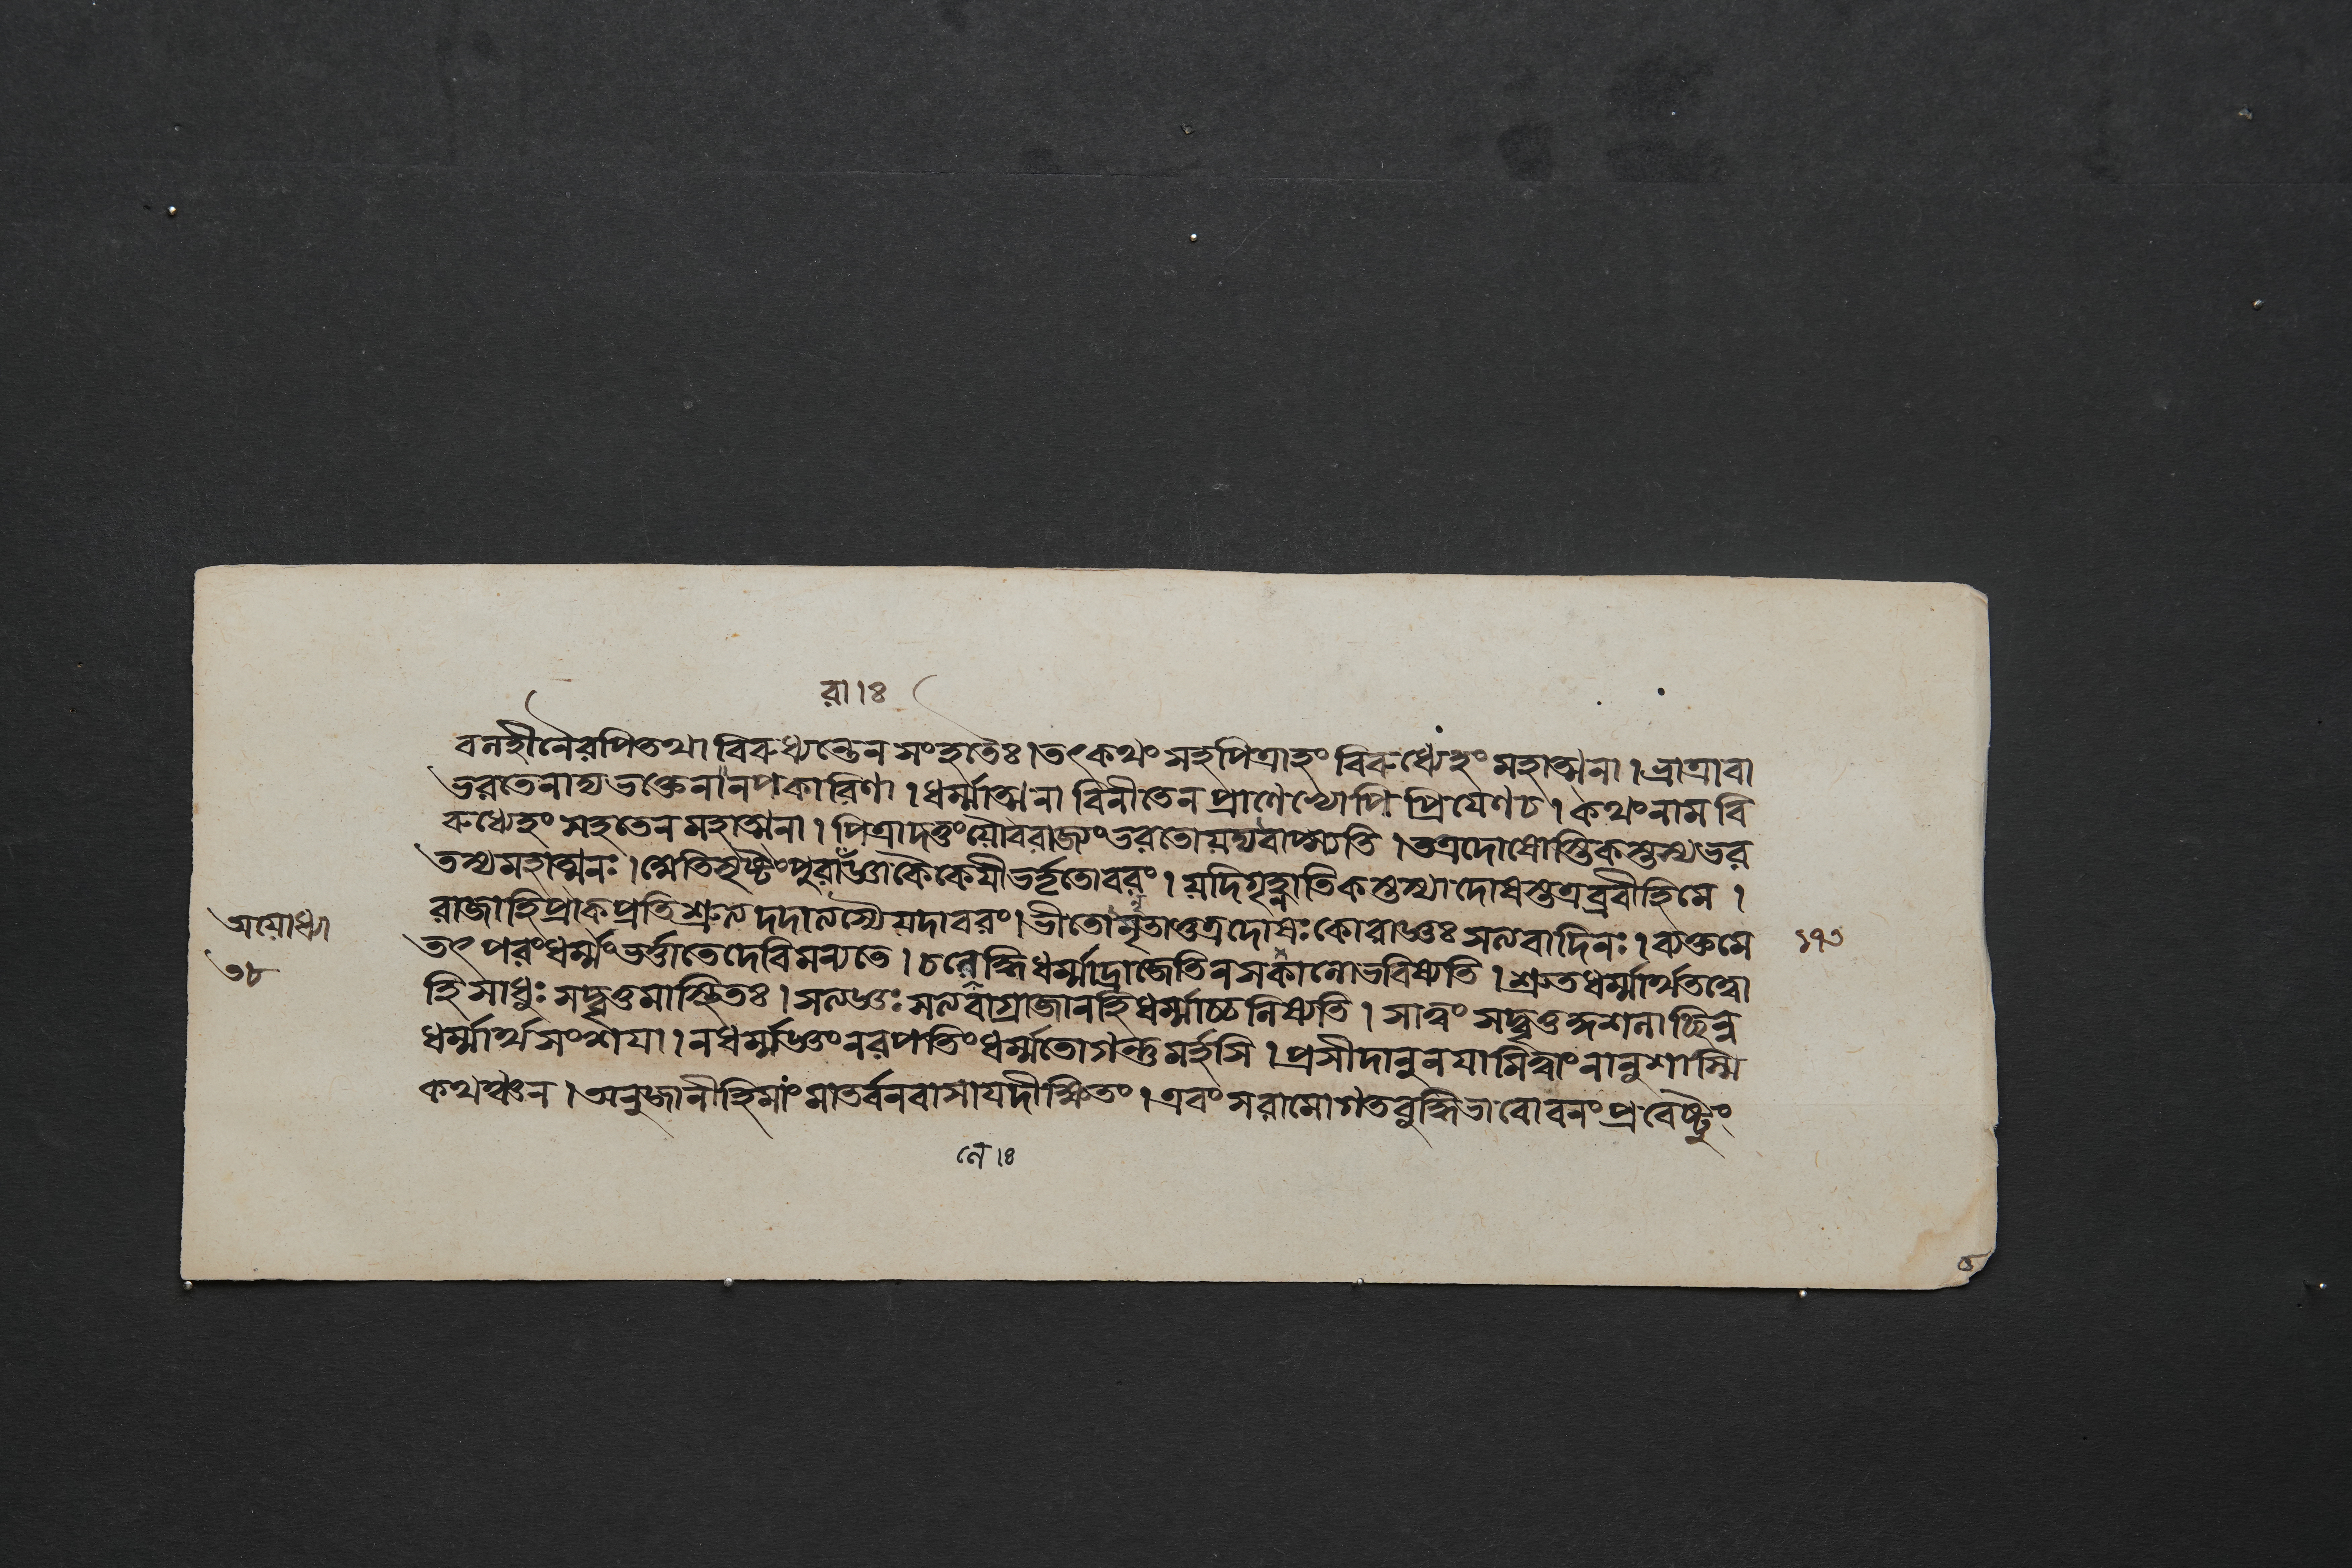 রা।ঃ
বনহীনৈরপিতথা বিরুধ্যন্তেন সংহতৈঃ। তৎকথং সহপিত্রাহং বিরুধ্যেহং মহাত্মনা। ভ্রাত্রাবা
ভরতেনাদ্য ভক্তেনানপকারিণা। ধর্ম্মাত্মনা বিনীতেন প্রাণেভ্যোপি প্রিযেণচ। কথংনাম বি
রুধ্যেহং সহতেন মহাত্মনা। পিত্রাদত্তং যৌবরাজ্যং ভরতো যদ্যবাপ্স্যতি। তত্রদোষোস্তিকস্তস্যভর
তস্যমহাত্মনঃ। কৈকেযীভর্ত্তৃতোবরং। যদিগৃহ্ণাতিকস্তস্যা দোষস্তত্রব্রবীহিমে।
রাজাহিপ্রাকপ্রতিশ্রুত্য দদাত্যস্যৈ যদাবরং। ভীতোনৃতাত্তত্রদোষঃ কোরাজ্ঞঃ সত্যবাদিনঃ। ব্যক্তমে
অযোধ্যা
৩৮
তৎ পরংধর্ম্মং ভর্ত্তাতেদেবিমন্যতে। চলেদ্ধিধর্ম্মাদ্রাজেতিনসকালোভবিষ্যতি। শ্রুতধর্ম্মার্থতত্ত্বো
১৭৩
হি সাধুঃ সদ্বৃত্তমাস্থিতঃ। সত্যজ্ঞঃ সত্যবাগ্রাজানহিধর্ম্মাচ্চলিষ্যতি। সাত্বং সদ্বৃত্ত
ধর্ম্মার্থসংশযা। নধর্ম্মজ্ঞংনরপতিং ধর্ম্মতোগন্তুমর্হসি। প্রসীদানুনযামিত্বাং নানুশাস্মি
কথঞ্চন। অনুজানীহিমাং মাতর্বনবাসাযদীক্ষিতং। এবং সরামো বনং প্রবেষ্টুং
নে।ঃ